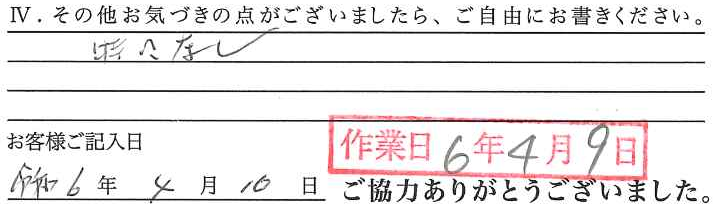 Ⅳ．その他お気づきの点がございましたら、ご自由にお書きください。
特になし
お客様ご記入日
作業日 6年4月9日
令和6年4月10日
ご協力ありがとうございました。